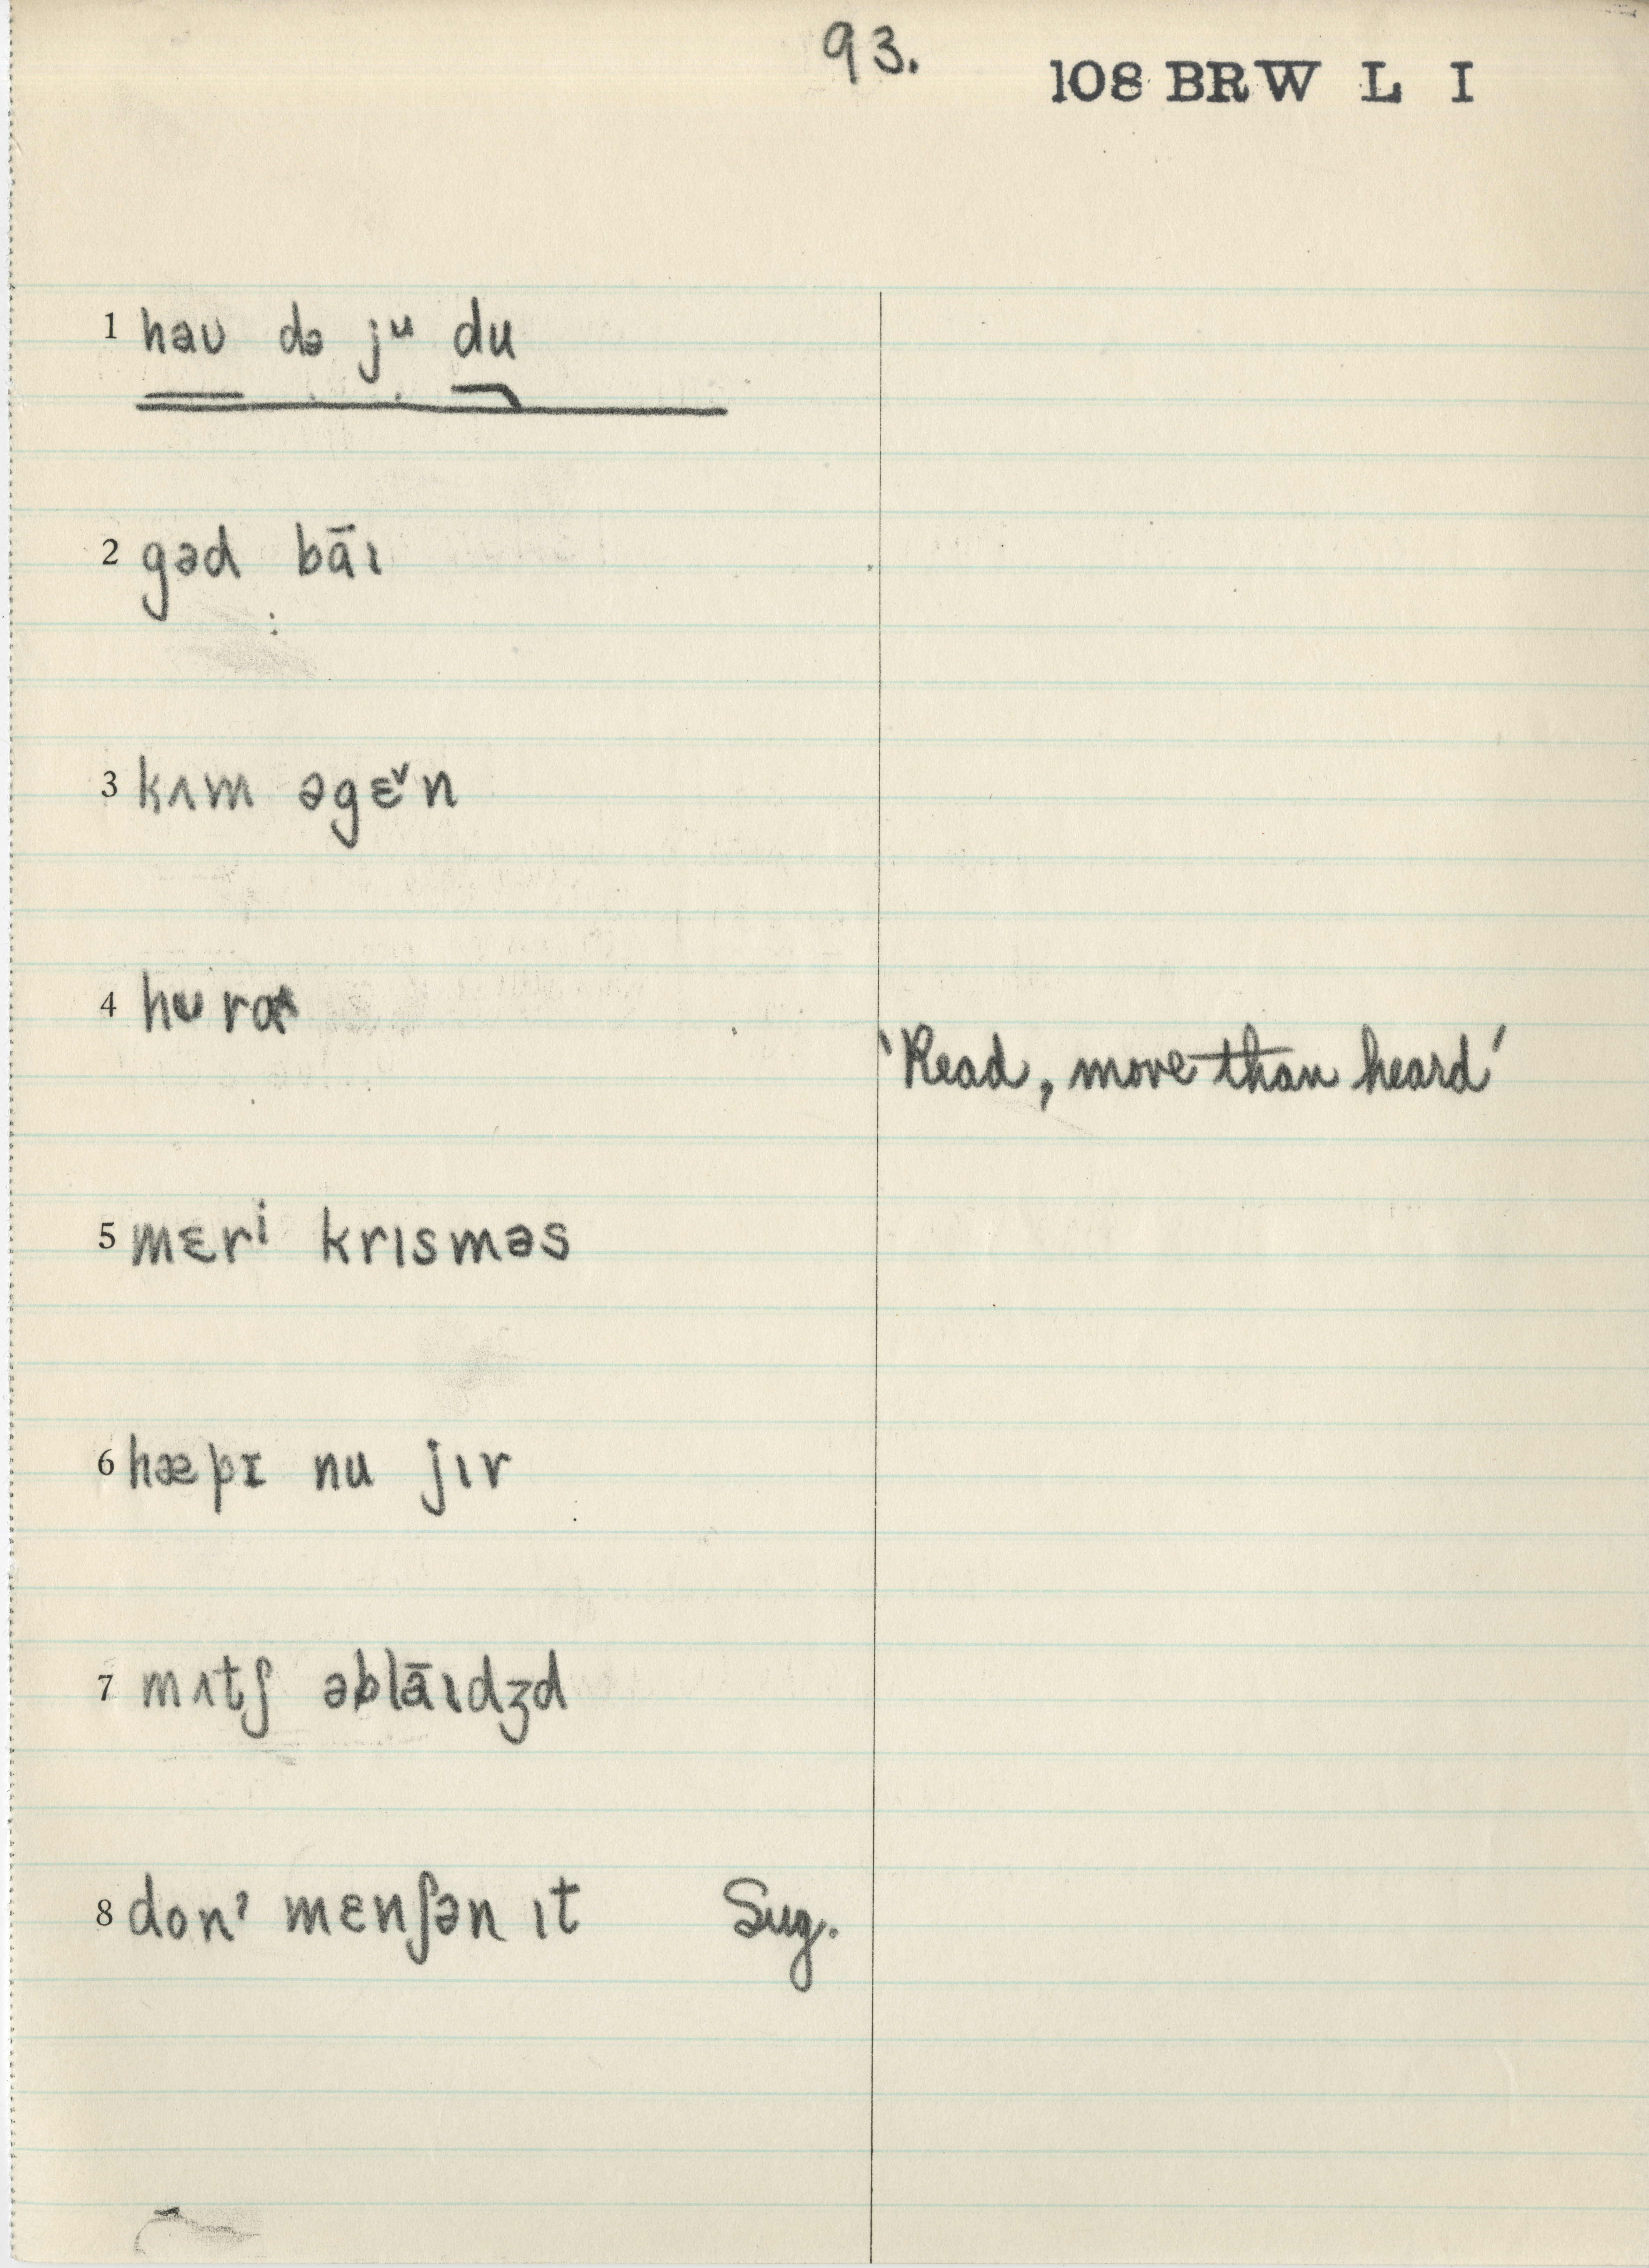 93.
108 BRW L I
1 həʊ də jᵘ du
2 gəd bāɪ
3 kʌm əgɛˇn
4 hʊrɑ
'Read, more than heard'
5 mɛrⁱ krɪsməs
6 hæpɪ nu jɪr
7 mʌtʃ əblāɪdʒd
8 don' mɛnʃən ɪt Sug.